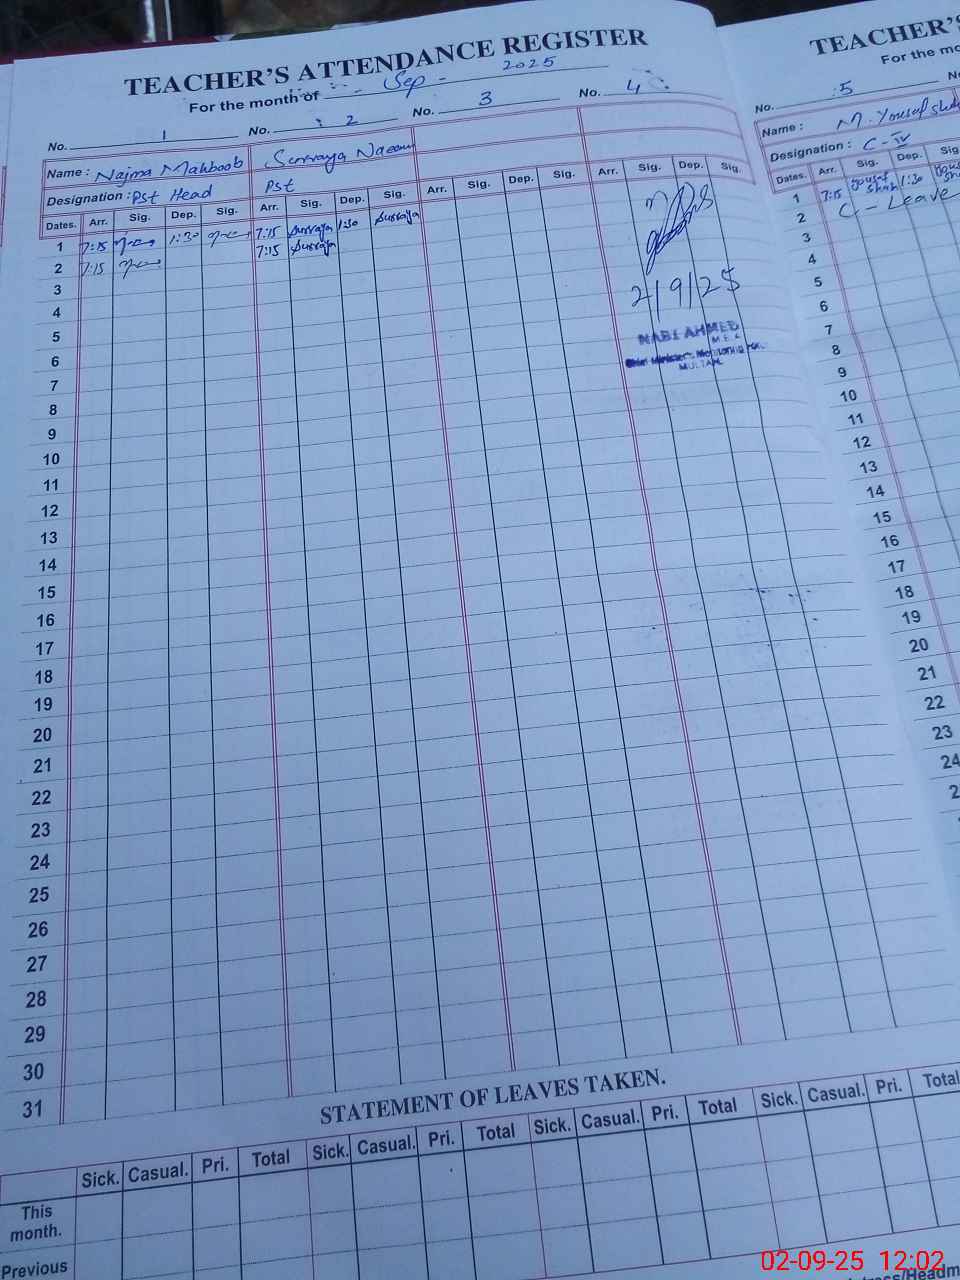 TEACHER'S ATTENDANCE REGISTER
For the month of Sep - 2025
No. 1 No. 2 No. 3 No. 4
Name : Najma Mahboob Surraya Naeem
Designation : Pst Head Pst
Dates. Arr. Sig. Dep. Sig. Arr. Sig. Dep. Sig. Arr. Sig. Dep. Sig. Arr. Sig. Dep. Sig.
1 7:15 1:30 7:15 Surraya 1:30 Surraya
2 7:15 7:15 Surraya
3
4
5
6
7
8
9
10
11
12
13
14
15
16
17
18
19
20
21
22
23
24
25
26
27
28
29
30
31
2/9/25
NABI AHMED
M.E.A
Chief Minister's Monitoring
MULTAN
STATEMENT OF LEAVES TAKEN.
Sick. Casual. Pri. Total Sick. Casual. Pri. Total Sick. Casual. Pri. Total Sick. Casual. Pri. Total
This
month.
Previous
TEACHER'S
For the mo
No. 5 No
Name : M. Yousaf Shah
Designation : C-IV
Dates. Arr. Sig. Dep. Sig
1 7:15 Yousaf Shah 1:30 Yousaf
2 C - Leave
3
4
5
6
7
8
9
10
11
12
13
14
15
16
17
18
19
20
21
22
23
24
02-09-25 12:02